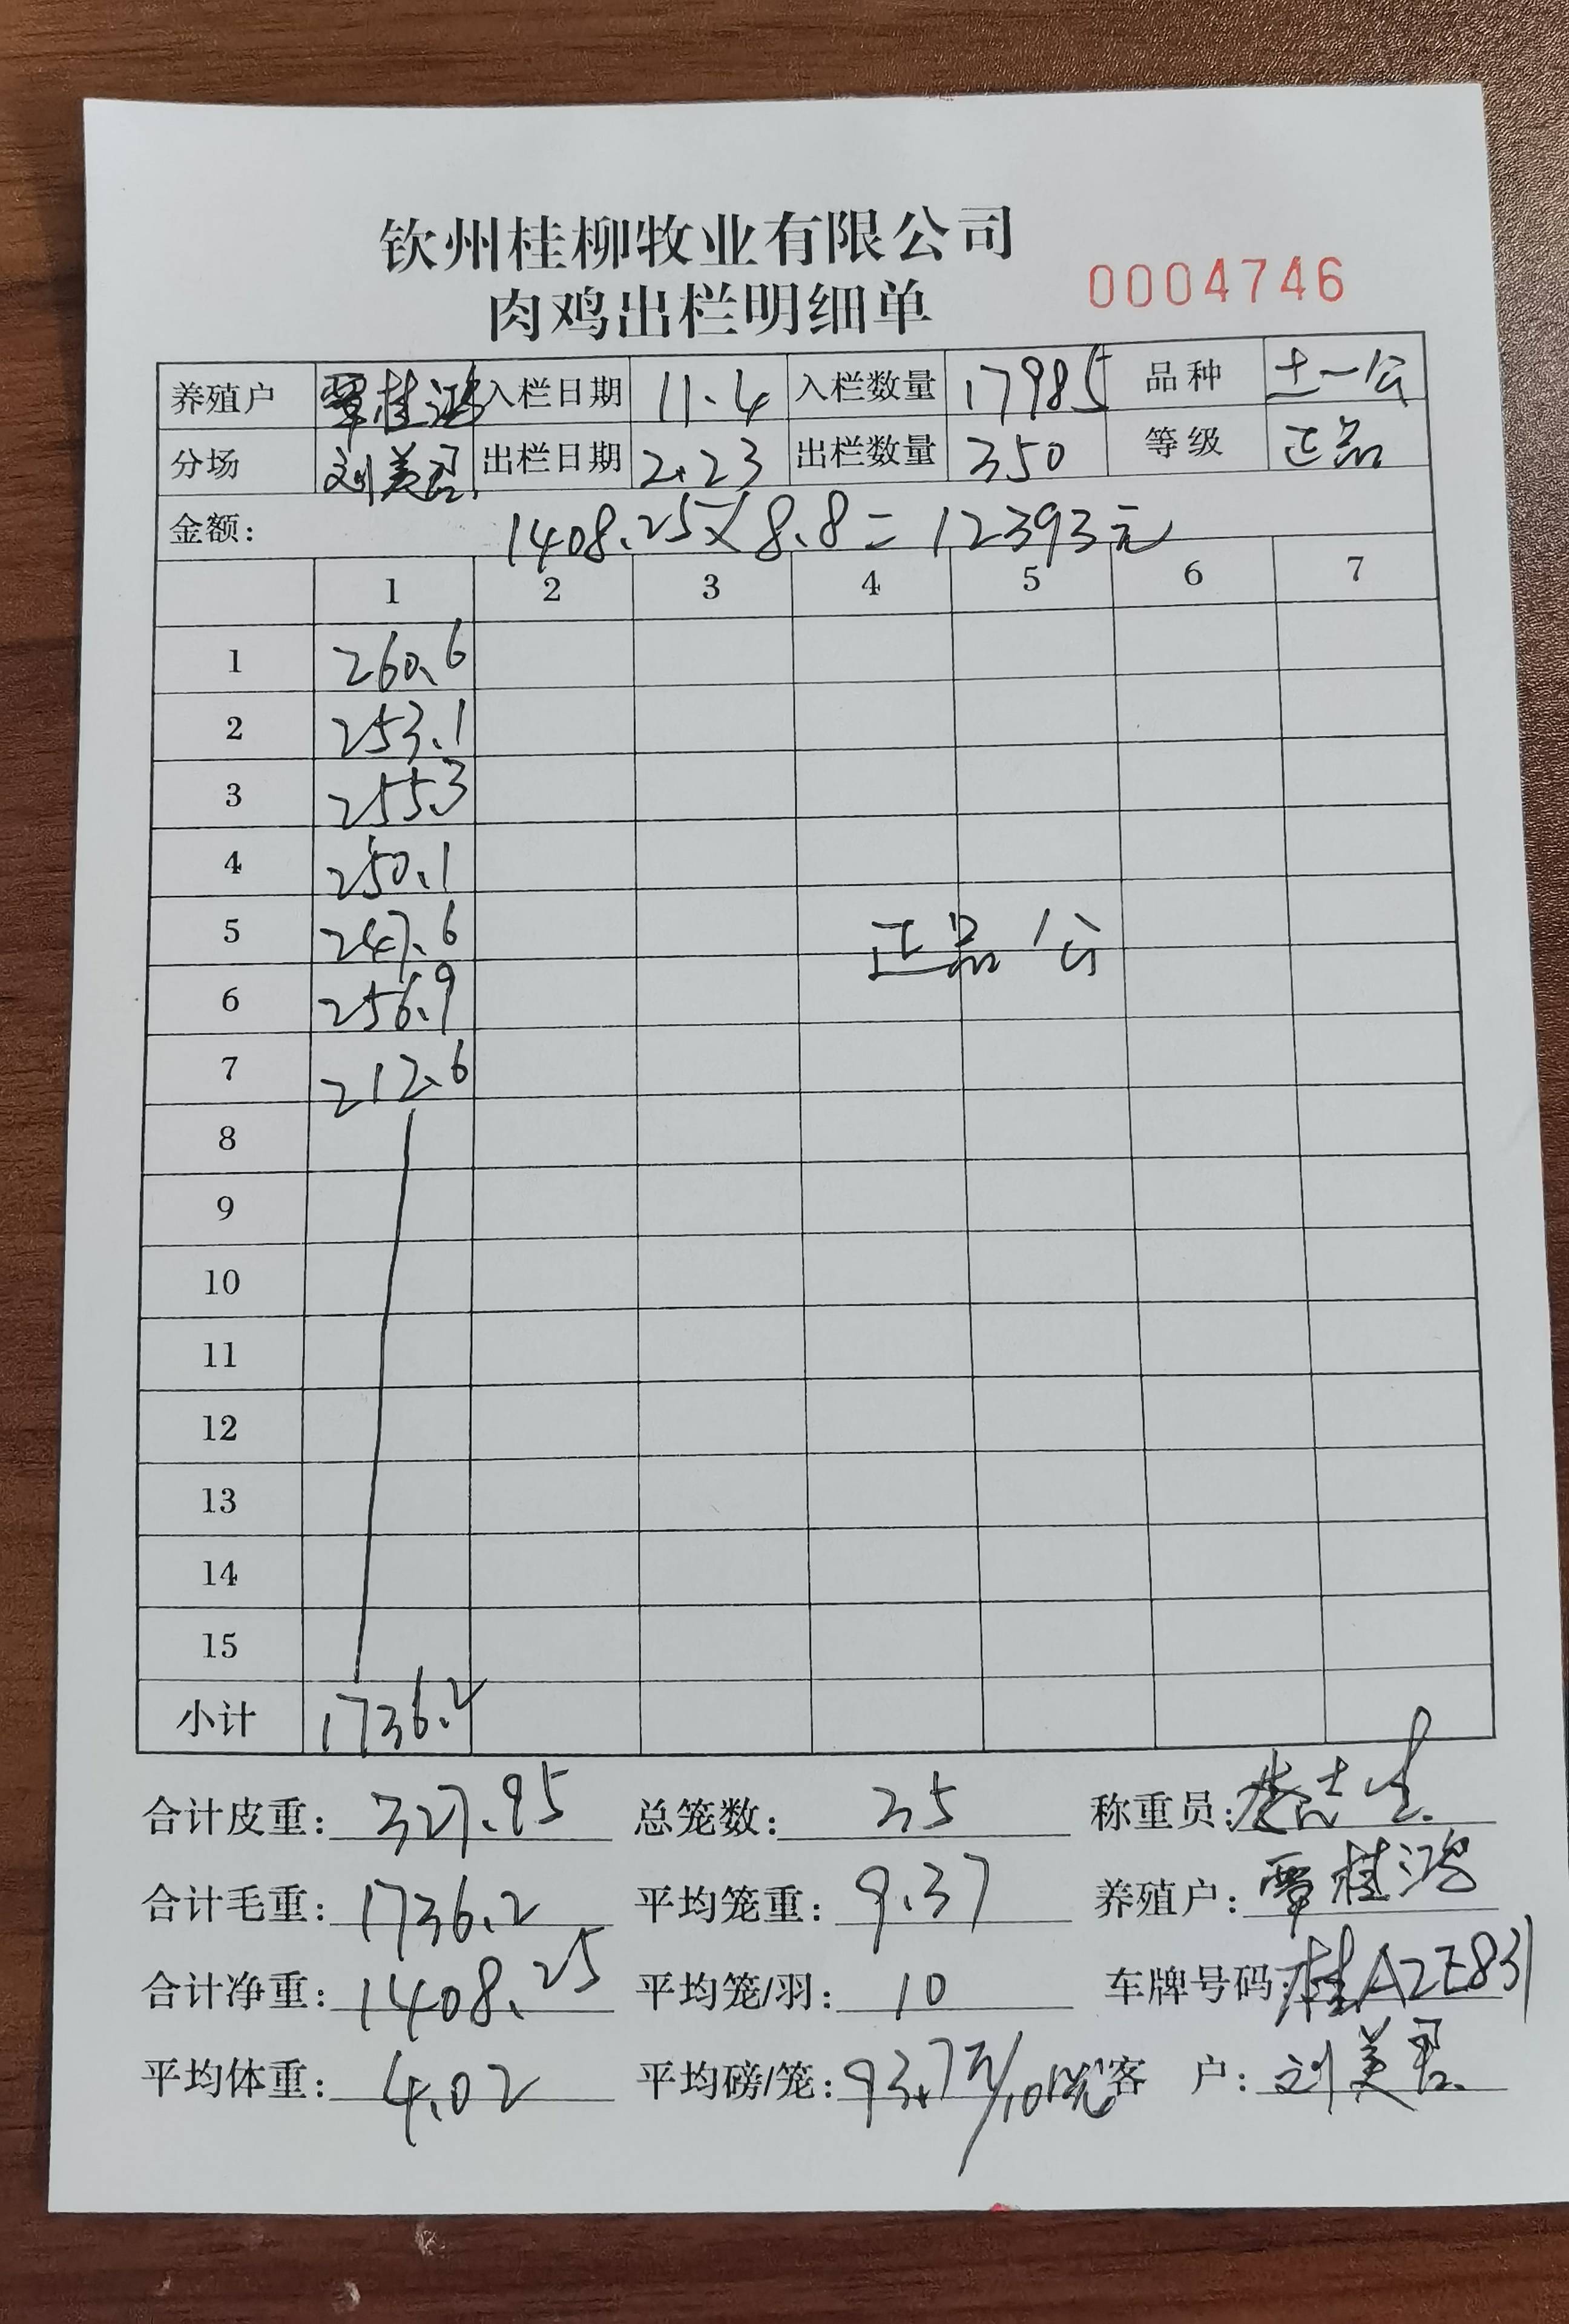 钦州桂柳牧业有限公司
肉鸡出栏明细单 0004746
养殖户 覃桂鸿 入栏日期 11.4 入栏数量 17985 品种 土一公
分场 刘美君 出栏日期 2.23 出栏数量 350 等级 正品
金额: 1408.25×8.8=12393元
1 2 3 4 5 6 7
1 260.6
2 253.1
3 255.3
4 250.1
5 247.6 正品公
6 256.9
7 212.6
8
9
10
11
12
13
14
15
小计 1736.2
合计皮重: 327.95 总笼数: 35 称重员:
合计毛重: 1736.2 平均笼重: 9.37 养殖户: 覃桂鸿
合计净重: 1408.25 平均笼/羽: 10 车牌号码: 桂A2E831
平均体重: 4.02 平均磅/笼: 93.7斤/10 客 户: 刘美君